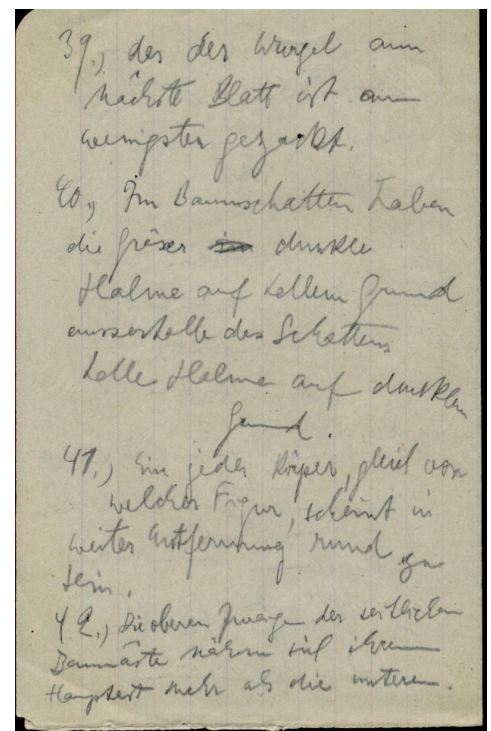 39.) das der Wurzel am
nächste Blatt ist am
wenigsten gezackt.
40.) Im Baumschatten haben
die Gräser dunkle
Halme auf hellem Grund
ausserhalb des Schattens
helle Halme auf dunklem
Grund.
41.) Ein jeder Körper, gleich von
welcher Figur, scheint in
weiter Entfernung rund zu
sein.
42.) Die oberen Zweige der seitlichen
Baumäste nähern sich ihrem
Hauptast mehr als die unteren.